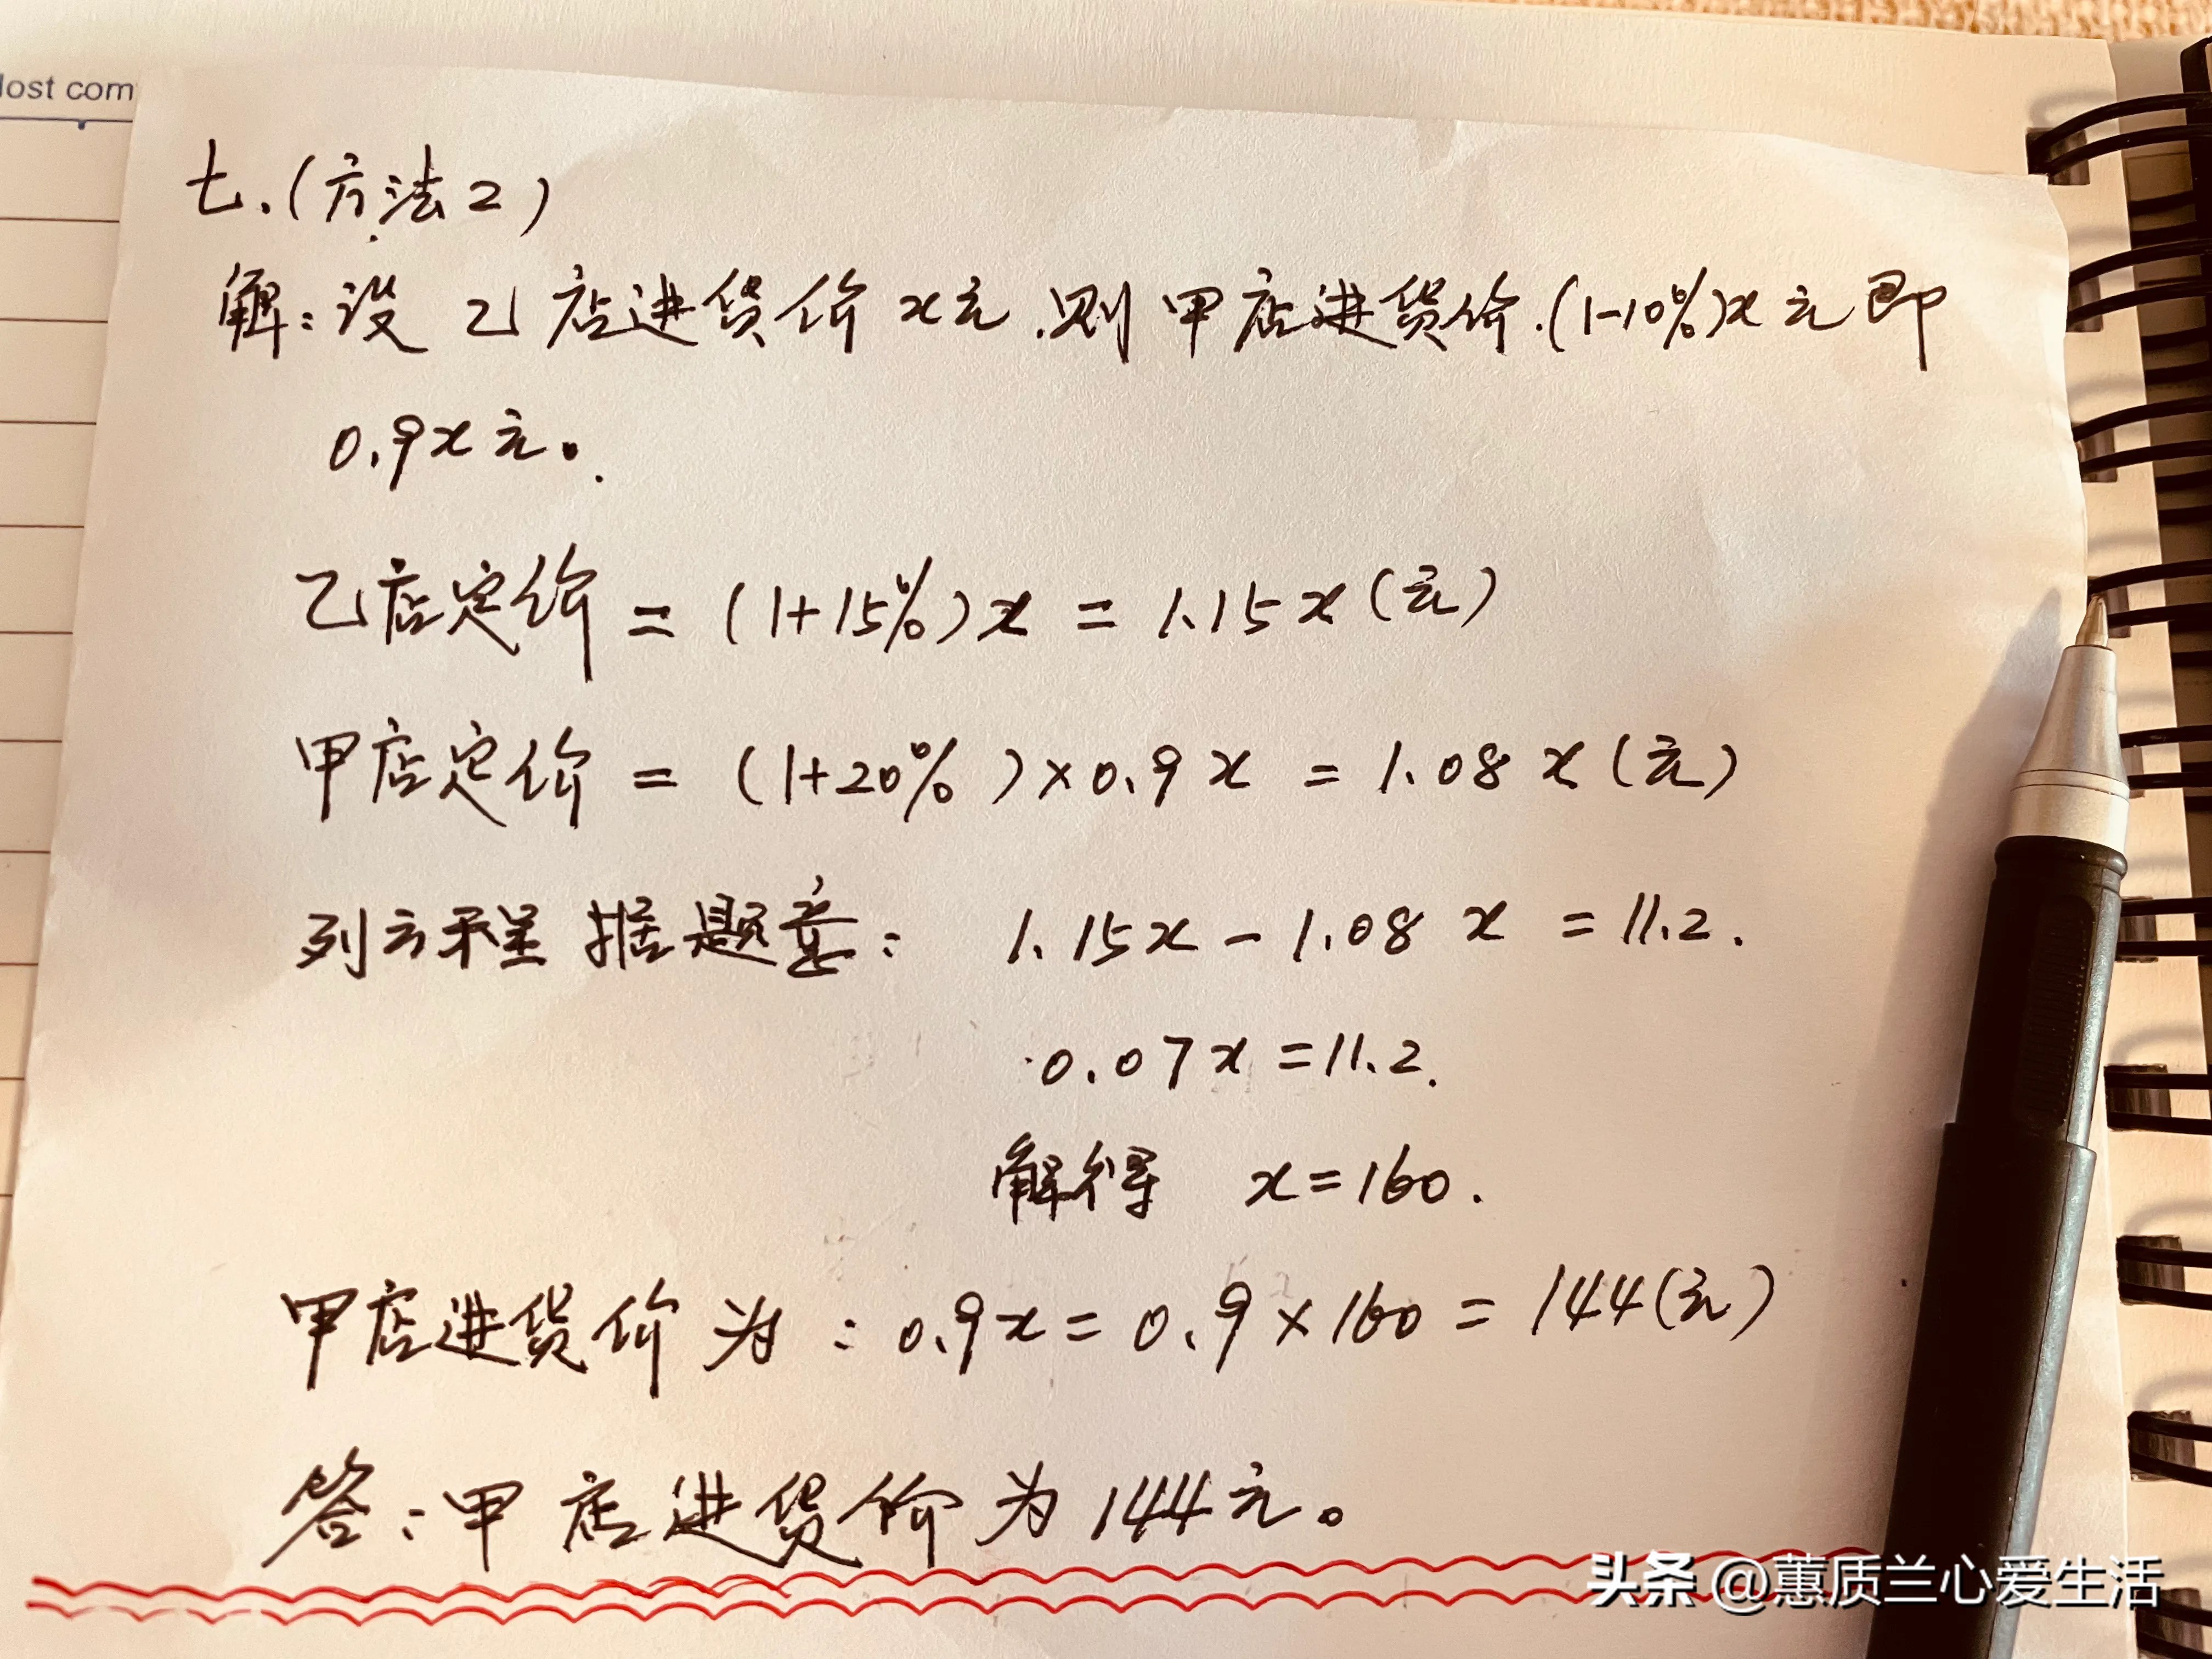 lost com
七.(方法2)
解:设乙店进货价x元.则甲店进货价.(1-10%)x元即
0.9x元。
乙店定价=(1+15%)x=1.15x(元)
甲店定价=(1+20%)×0.9x=1.08x(元)
列方程据题意: 1.15x-1.08x=11.2.
0.07x=11.2.
解得 x=160.
甲店进货价为:0.9x=0.9×160=144(元)
答:甲店进货价为144元。
头条 @蕙质兰心爱生活